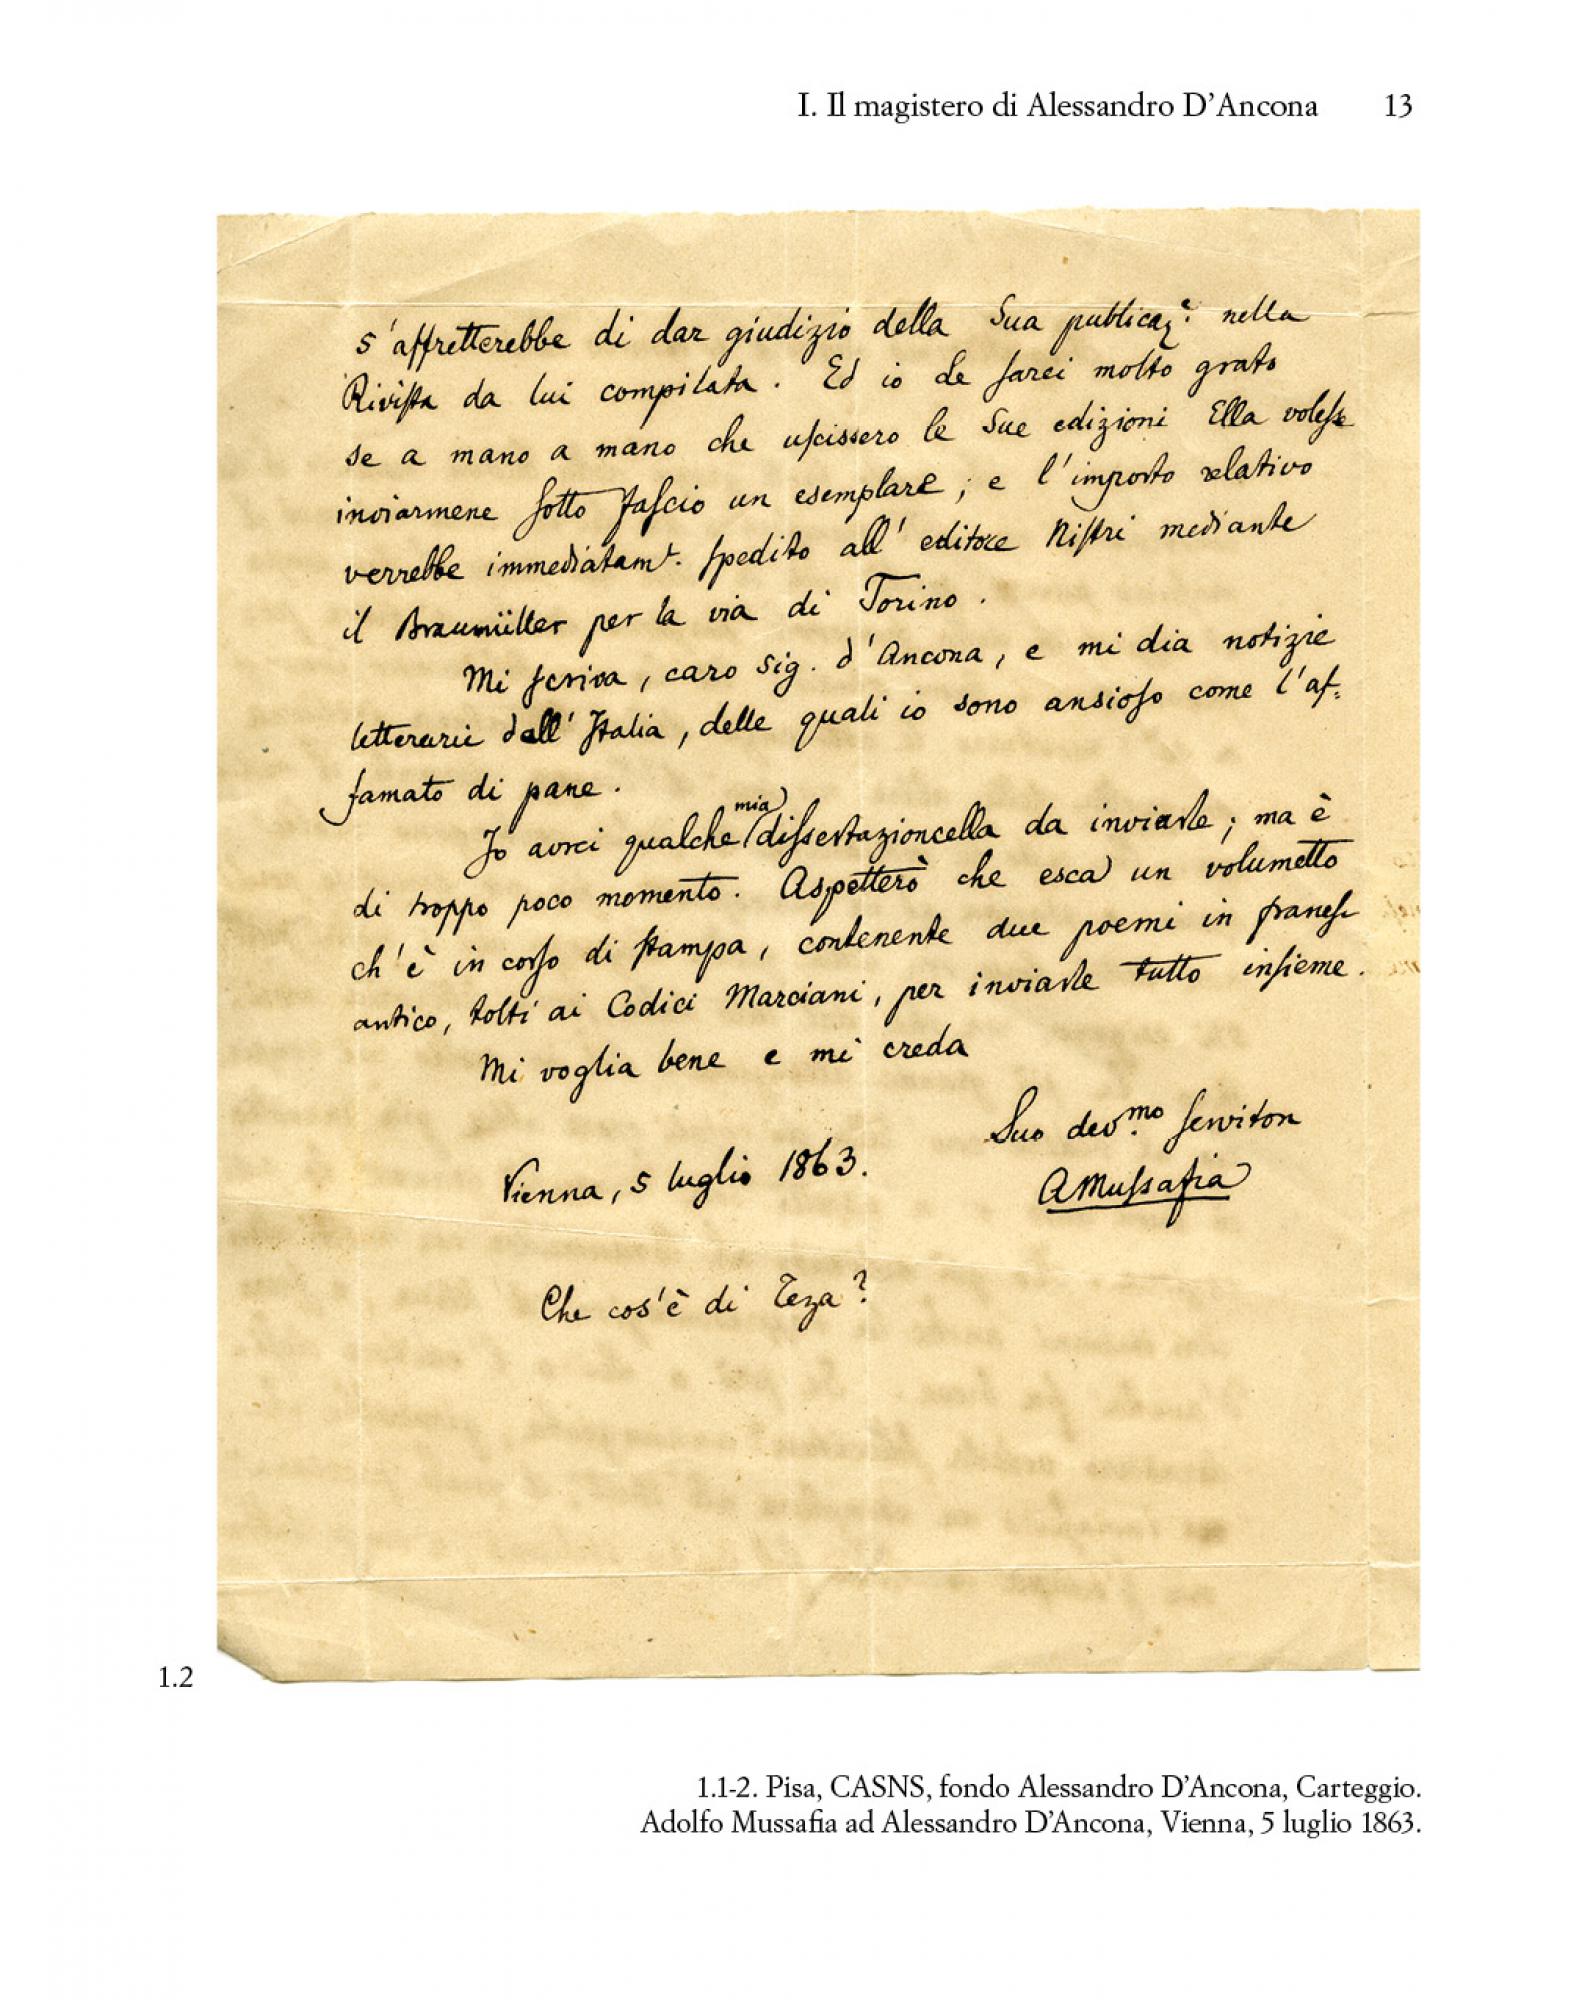 I. Il magistero di Alessandro D'Ancona 13
s'affretterebbe di dar giudizio della Sua publicaz.e nella
Rivista da lui compilata. Ed io Le sarei molto grato
se a mano a mano che uscissero le Sue edizioni Ella volesse
inviarmene sotto fascio un esemplare; e l'importo relativo
verrebbe immediatamt. spedito all'editore Nistri mediante
il Braumüller per la via di Torino.
Mi scriva, caro Sig. d'Ancona, e mi dia notizie
letterarie dall'Italia, delle quali io sono ansioso come l'af=
famato di pane.
Io avrei qualche mia dissertazioncella da inviarle; ma è
di troppo poco momento. Aspetterò che esca un volumetto
ch'è in corso di stampa, contenente due poemi in franese
antico, tolti ai Codici Marciani, per inviarle tutto insieme.
Mi voglia bene e mi creda
Suo dev.mo servitor
AMussafia
Vienna, 5 luglio 1863.
Che cos'è di Teza?
1.2
1.1-2. Pisa, CASNS, fondo Alessandro D'Ancona, Carteggio.
Adolfo Mussafia ad Alessandro D'Ancona, Vienna, 5 luglio 1863.